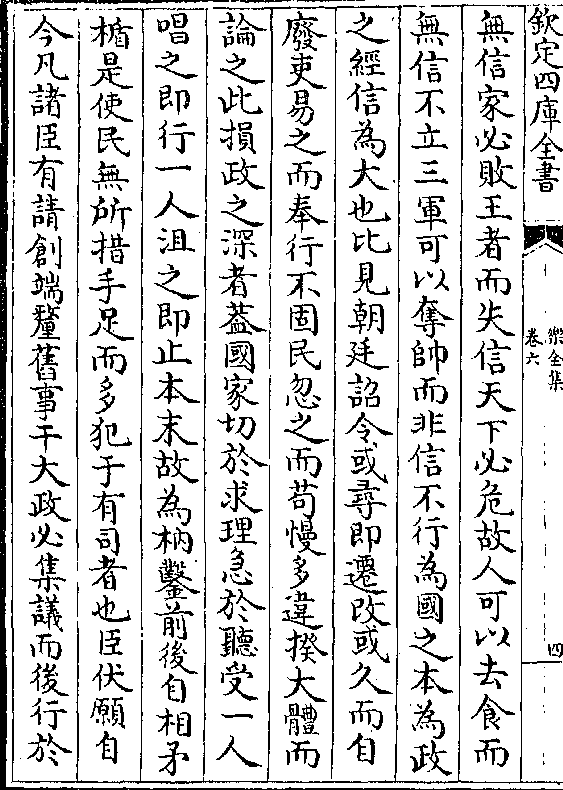 欽定四庫全書
樂全集
卷六
四
無信家必敗王者而失信天下必危故人可以去食而
無信不立三軍可以奪帥而非信不行為國之本為政
之經信為大也比見朝廷詔令或尋即遷改或久而自
廢吏易之而奉行不固民忽之而苟慢多違揆大體而
論之此損政之深者葢國家切於求理急於聽受一人
唱之即行一人沮之即止本末故為枘鑿前後自相矛
楯是使民無所措手足而多犯于有司者也臣伏願自
今凡諸臣有請創端釐舊事干大政必集議而後行於